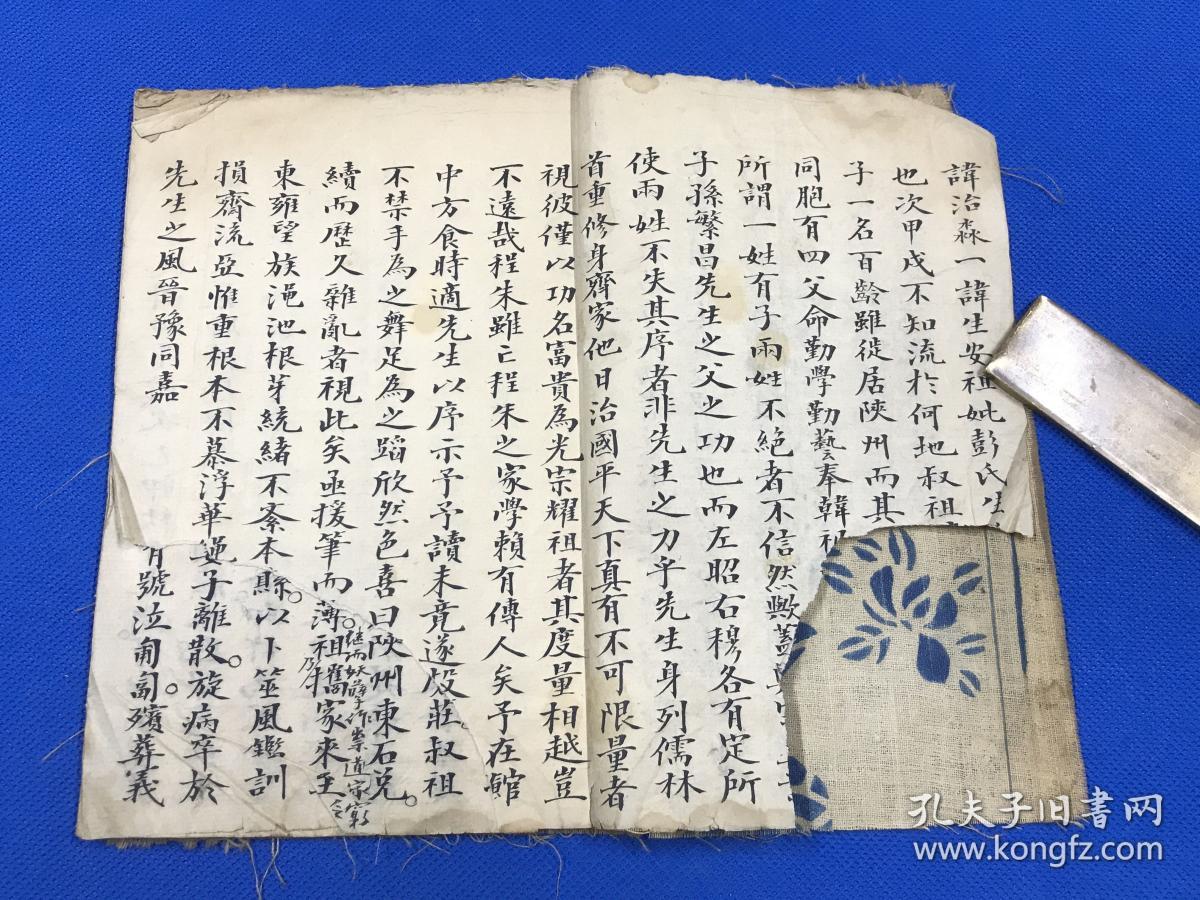 諱治淼一諱生安祖妣彭氏生
也次甲戌不知流於何地叔祖
子一名百齡雖徙居陝州而其
同胞有四父命勤學勤藝奉韓祖
所謂一姓有子兩姓不絕者不信然歟蓋
子孫繁昌先生之父之功也而左昭右穆各有定所
使兩姓不失其序者非先生之力乎先生身列儒林
首重修身齊家他日治國平天下真有不可限量者
視彼僅以功名富貴為光宗耀祖者其度量相越豈
不遠哉程朱雖亡程朱之家學賴有傳人矣予在館
中方食時適先生以序示予予讀未竟遂殷莊叔祖
不禁手為之舞足為之蹈欣然色喜曰陝州東石兑。
續而歷久雜亂者視此矣亟援筆而薄祖舊家來至
妖孽作祟道家窮
東雍望族澠池根芽統緒不紊本縣。以卜筮風鑑訓
損齊流亞惟重根本不慕浮華子離散。旋病卒於
先生之風晉豫同嘉有號泣匍匐。殯葬義
孔夫子旧书网
www.kongfz.com